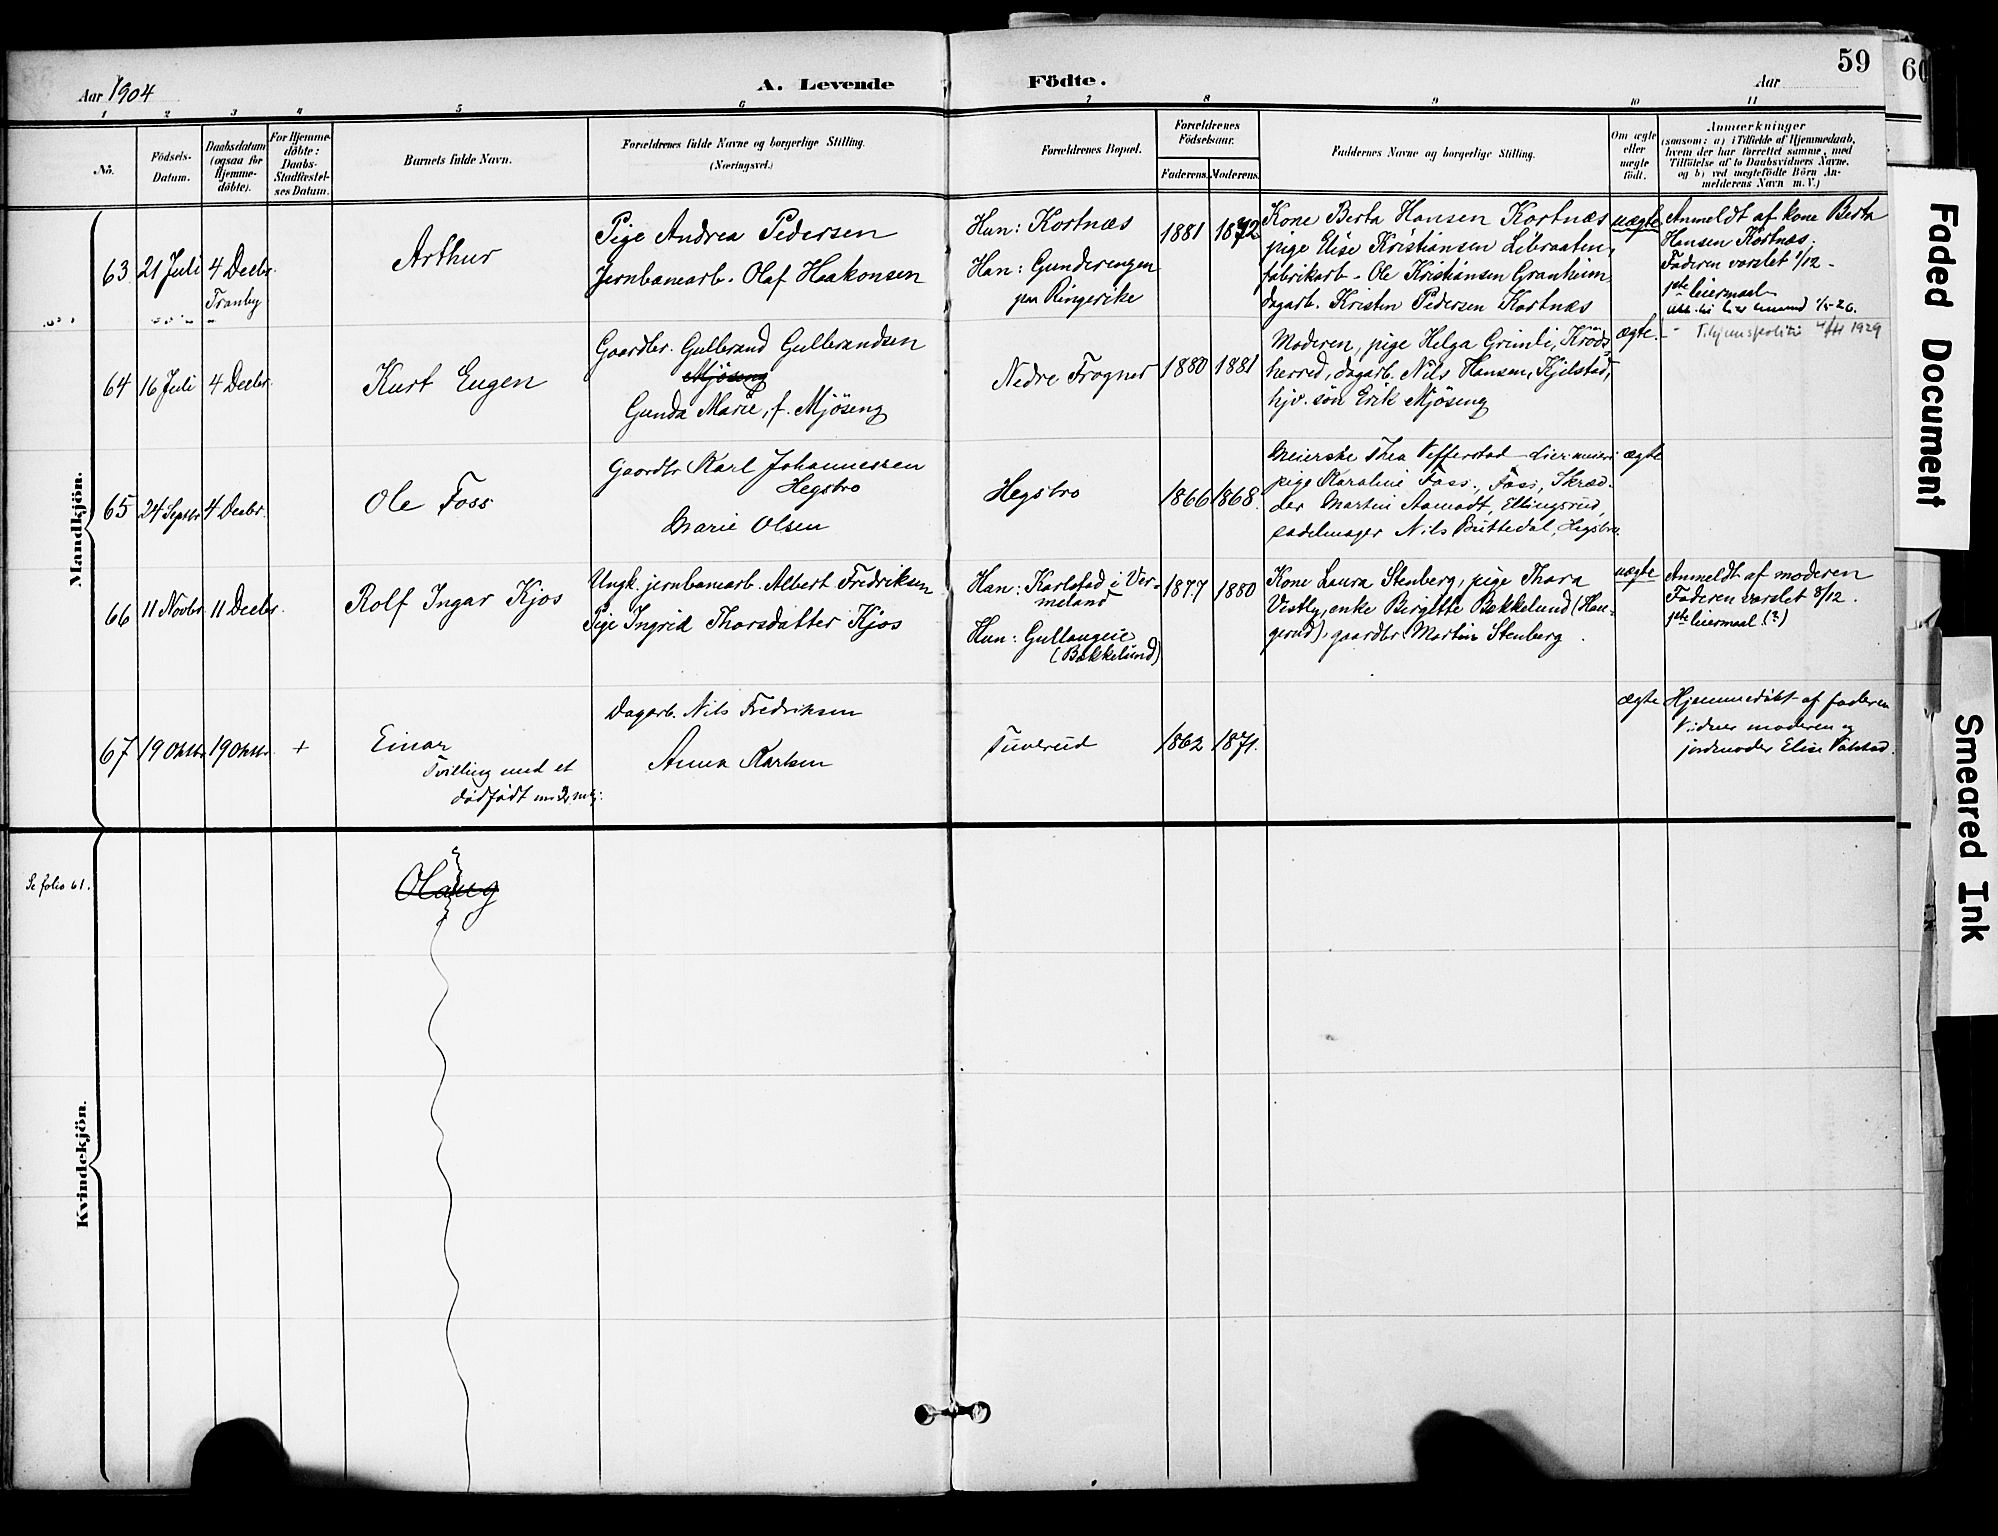 59
60
Aar 1904
A. Levende
Födte.
Aar
1 2 3 4 5 6 7 8 9 10 11
No.
Födsels-
Datum.
Daabsdatum
(ogsaa for
Hjemme-
döbte).
For Hjemme-
döbte:
Daabs-
Stadfæstel-
ses Datum.
Barnets fulde Navn.
Forældrenes fulde Navne og borgerlige Stilling.
(Næringsvei.)
Forældrenes Bopæl.
Forældrenes
Födselsaar.
Faderens. Moderens.
Faddernes Navne og borgerlige Stilling.
Om ægte
eller
uægte
födt.
Anmærkninger
(saasom: a) i Tilfælde af Hjemmedaab,
hvem der har forrettet samme, med
Tilföielse af to Daabsvidners Navne.
og b) ved uægtefödte Börn An-
melderens Navn m. V.)
Mandkjön.
63 21 Juli 4 Decbr.
Tranby
Arthur
Pige Andrea Pedersen
Jernbanearb. Olaf Haakonsen
Hun: Kortnæs
Han: Gunderengen
paa Ringerike
1881 1872
Kone Berta Hansen Kortnæs
pige Elise Kristiansen Libraaten,
fabrikarb. Ole Kristiansen Granheim,
dagarb. Kristen Pedersen Kortnæs
uægte
Anmeldt af kone Berta
Hansen Kortnæs.
Faderen varslet 1/12 -
1ste leiermaal
64 16 Juli 4 Decbr.
Kurt Eugen
Gaardbr. Gulbrand Gulbrandsen
Mjöseng
Gunda Marie, f. Mjöseng
Nedre Frogner
1880 1881
Moderen, pige Helga Grimli, Kröds-
herred, dagarb. Nils Hansen, Kjelstad,
hjv. sön Erik Mjöseng
ægte.
1929
65 24 Septbr 4 Decbr.
Ole Foss
Gaardbr Karl Johannessen
Hegsbro
Marie Olsen
Hegsbro
1866 1868.
Meierske Thea Vefferstad
pige Karoline Foss, Foss, Skræd-
der Martin Aamodt, Ellingsrud,
sadelmager Nils Bruttedal, Hegsbro.
ægte
66 11 Novbr 11 Decbr.
Rolf Ingar Kjos
Ungk. jernbanearb. Albert Fredriksen
Pige Ingrid Thorsdatter Kjos
Han: Karlstad i Ver-
meland
Hun: Gullaugeie
(Bækkelund)
1877 1880
Kone Laura Stenberg, pige Thora
Vestby, enke Birgitte Bækkelund (Hau-
gerud), gaardbr Martin Stenberg.
uægte
Anmeldt af moderen
Faderen varslet 8/12.
1ste leiermaal (?)
67 19 Oktbr 19 Oktbr +
Einar
Tvilling med et
dödfödt
Dagarb. Nils Fredriksen
Anna Karlsen
Tuverud
1862 1871.
ægte
Hjemmedöbt af faderen
Vidner moderen og
jordmoder Elise Valstad.
Kvindekjön.
Se folio 61.
Olaug
Faded Document
Smeared Ink